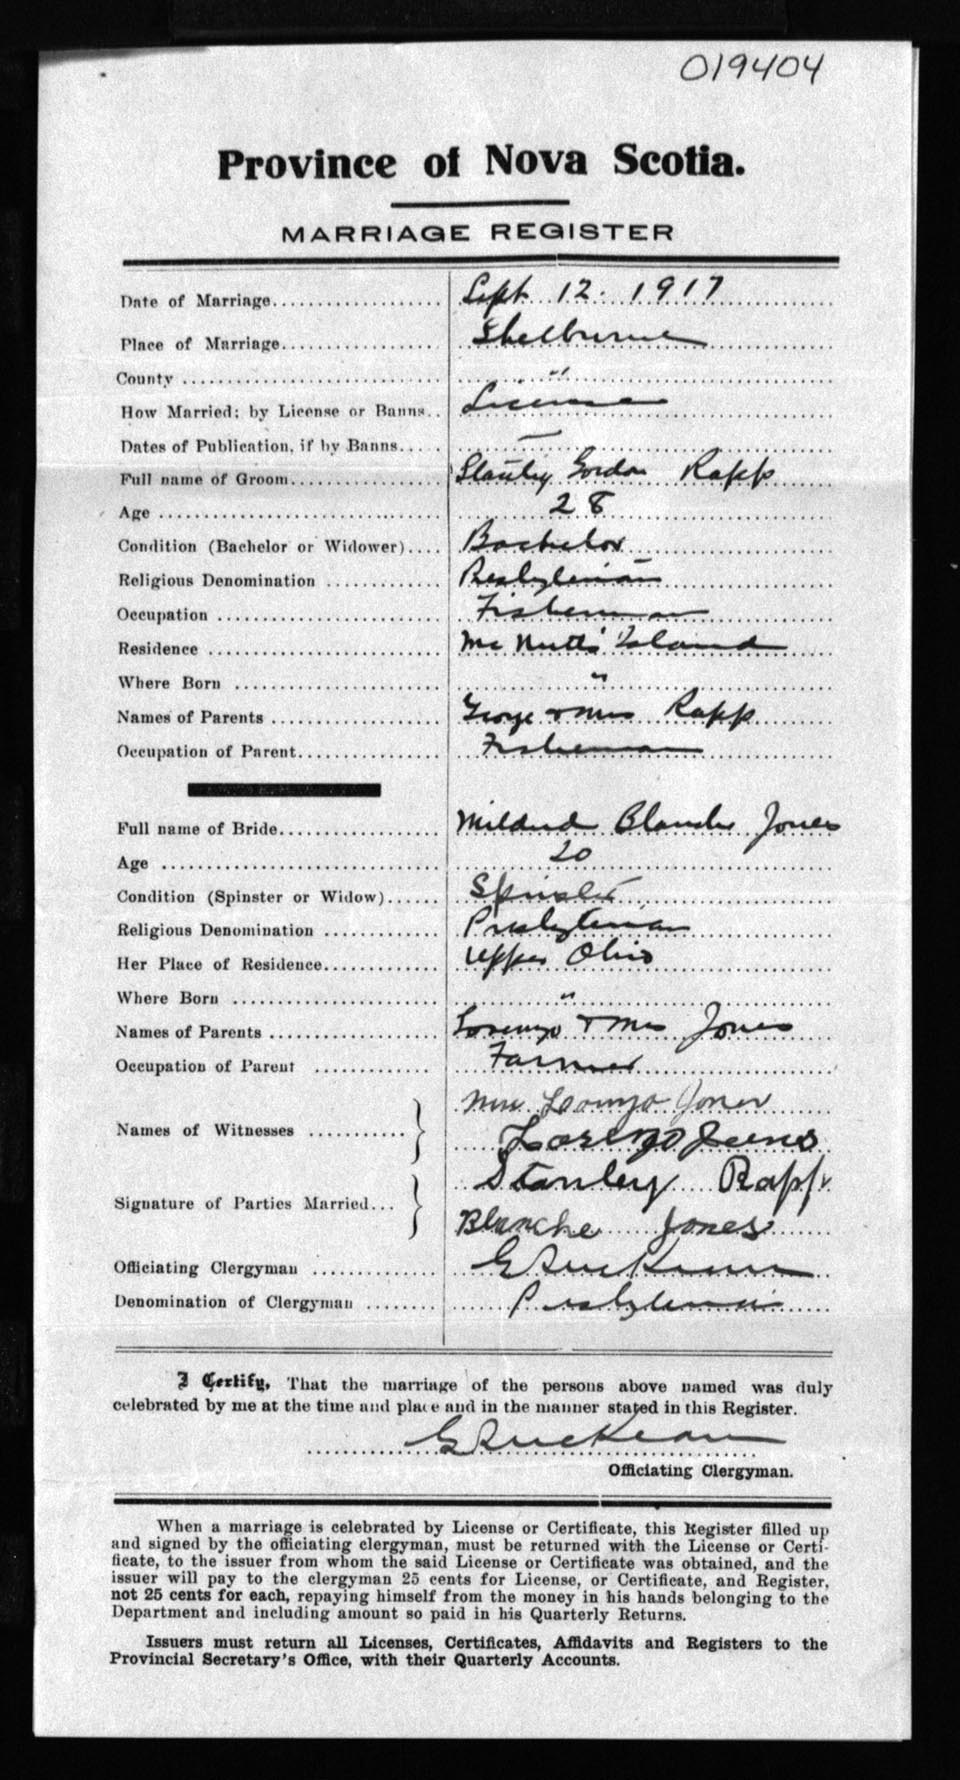 019404
Province of Nova Scotia.
MARRIAGE REGISTER
Date of Marriage.................... Sept 12. 1917
Place of Marriage.................. Shelburne
County ............................ "
How Married; by License or Banns.. License
Dates of Publication, if by Banns..... —
Full name of Groom.................. Stanley Gordon Rapp
Age ................................ 28
Condition (Bachelor or Widower).... Bachelor
Religious Denomination ............. Presbyterian
Occupation ......................... Fisherman
Residence .......................... Mc Nutts' Island
Where Born ........................ "
Names of Parents ................... George & Mrs Rapp
Occupation of Parent................ Fisherman
Full name of Bride.................. Mildred Blanche Jones
Age ................................ 20
Condition (Spinster or Widow)...... Spinster
Religious Denomination ............. Presbyterian
Her Place of Residence.............. Upper Ohio
Where Born ........................ "
Names of Parents ................... Lorenzo & Mrs Jones
Occupation of Parent .............. Farmer
Names of Witnesses ........... } Mrs Lorenzo Jones
Lorenzo Jones
Signature of Parties Married... } Stanley Rapp
Blanche Jones
Officiating Clergyman ..............
Denomination of Clergyman ........ Presbyterian
I Certify, That the marriage of the persons above named was duly
celebrated by me at the time and place and in the manner stated in this Register.
Officiating Clergyman.
When a marriage is celebrated by License or Certificate, this Register filled up
and signed by the officiating clergyman, must be returned with the License or Certi-
ficate, to the issuer from whom the said License or Certificate was obtained, and the
issuer will pay to the clergyman 25 cents for License, or Certificate, and Register,
not 25 cents for each, repaying himself from the money in his hands belonging to the
Department and including amount so paid in his Quarterly Returns.
Issuers must return all Licenses, Certificates, Affidavits and Registers to the
Provincial Secretary's Office, with their Quarterly Accounts.